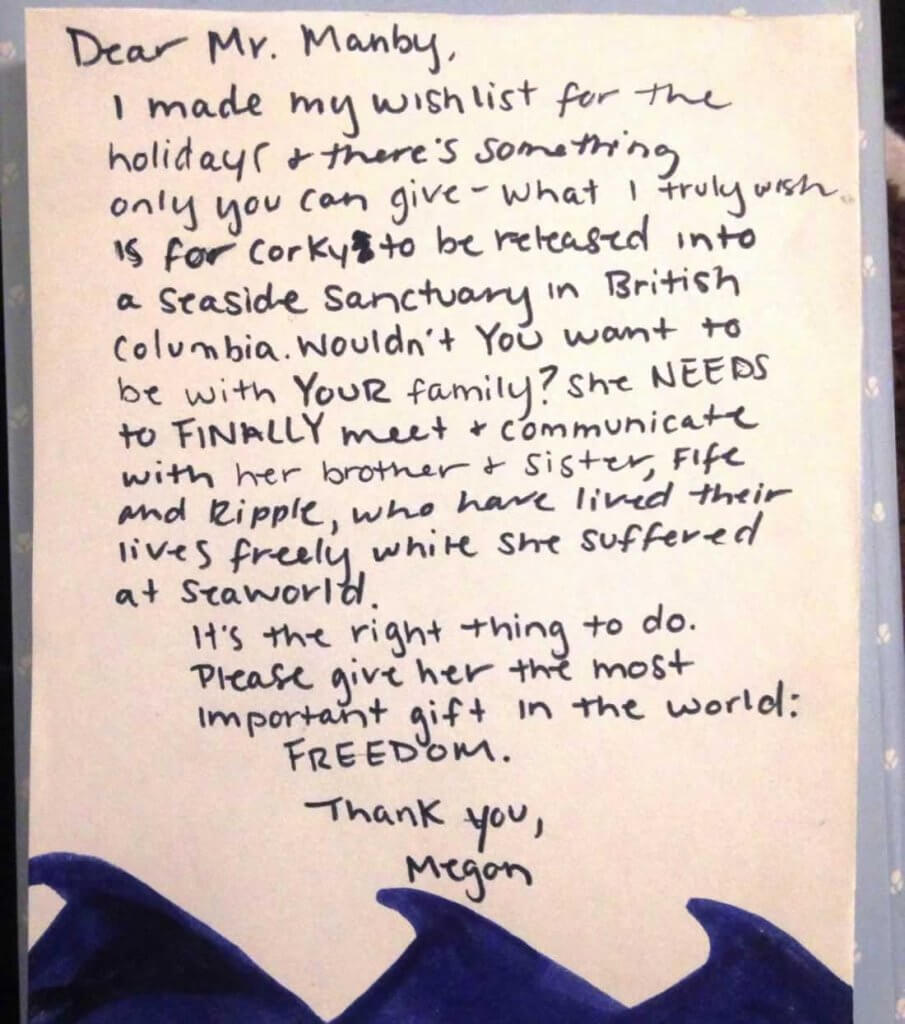 Dear Mr. Manby,
I made my wishlist for the
holidays & there's something
only you can give - what I truly wish
is for Corky to be released into
a seaside sanctuary in British
Columbia. Wouldn't You want to
be with YOUR family? She NEEDS
to FINALLY meet & communicate
with her brother & sister, Fife
and Ripple, who have lived their
lives freely while she suffered
at seaworld.
It's the right thing to do.
Please give her the most
important gift in the world:
FREEDOM.
Thank you,
Megan